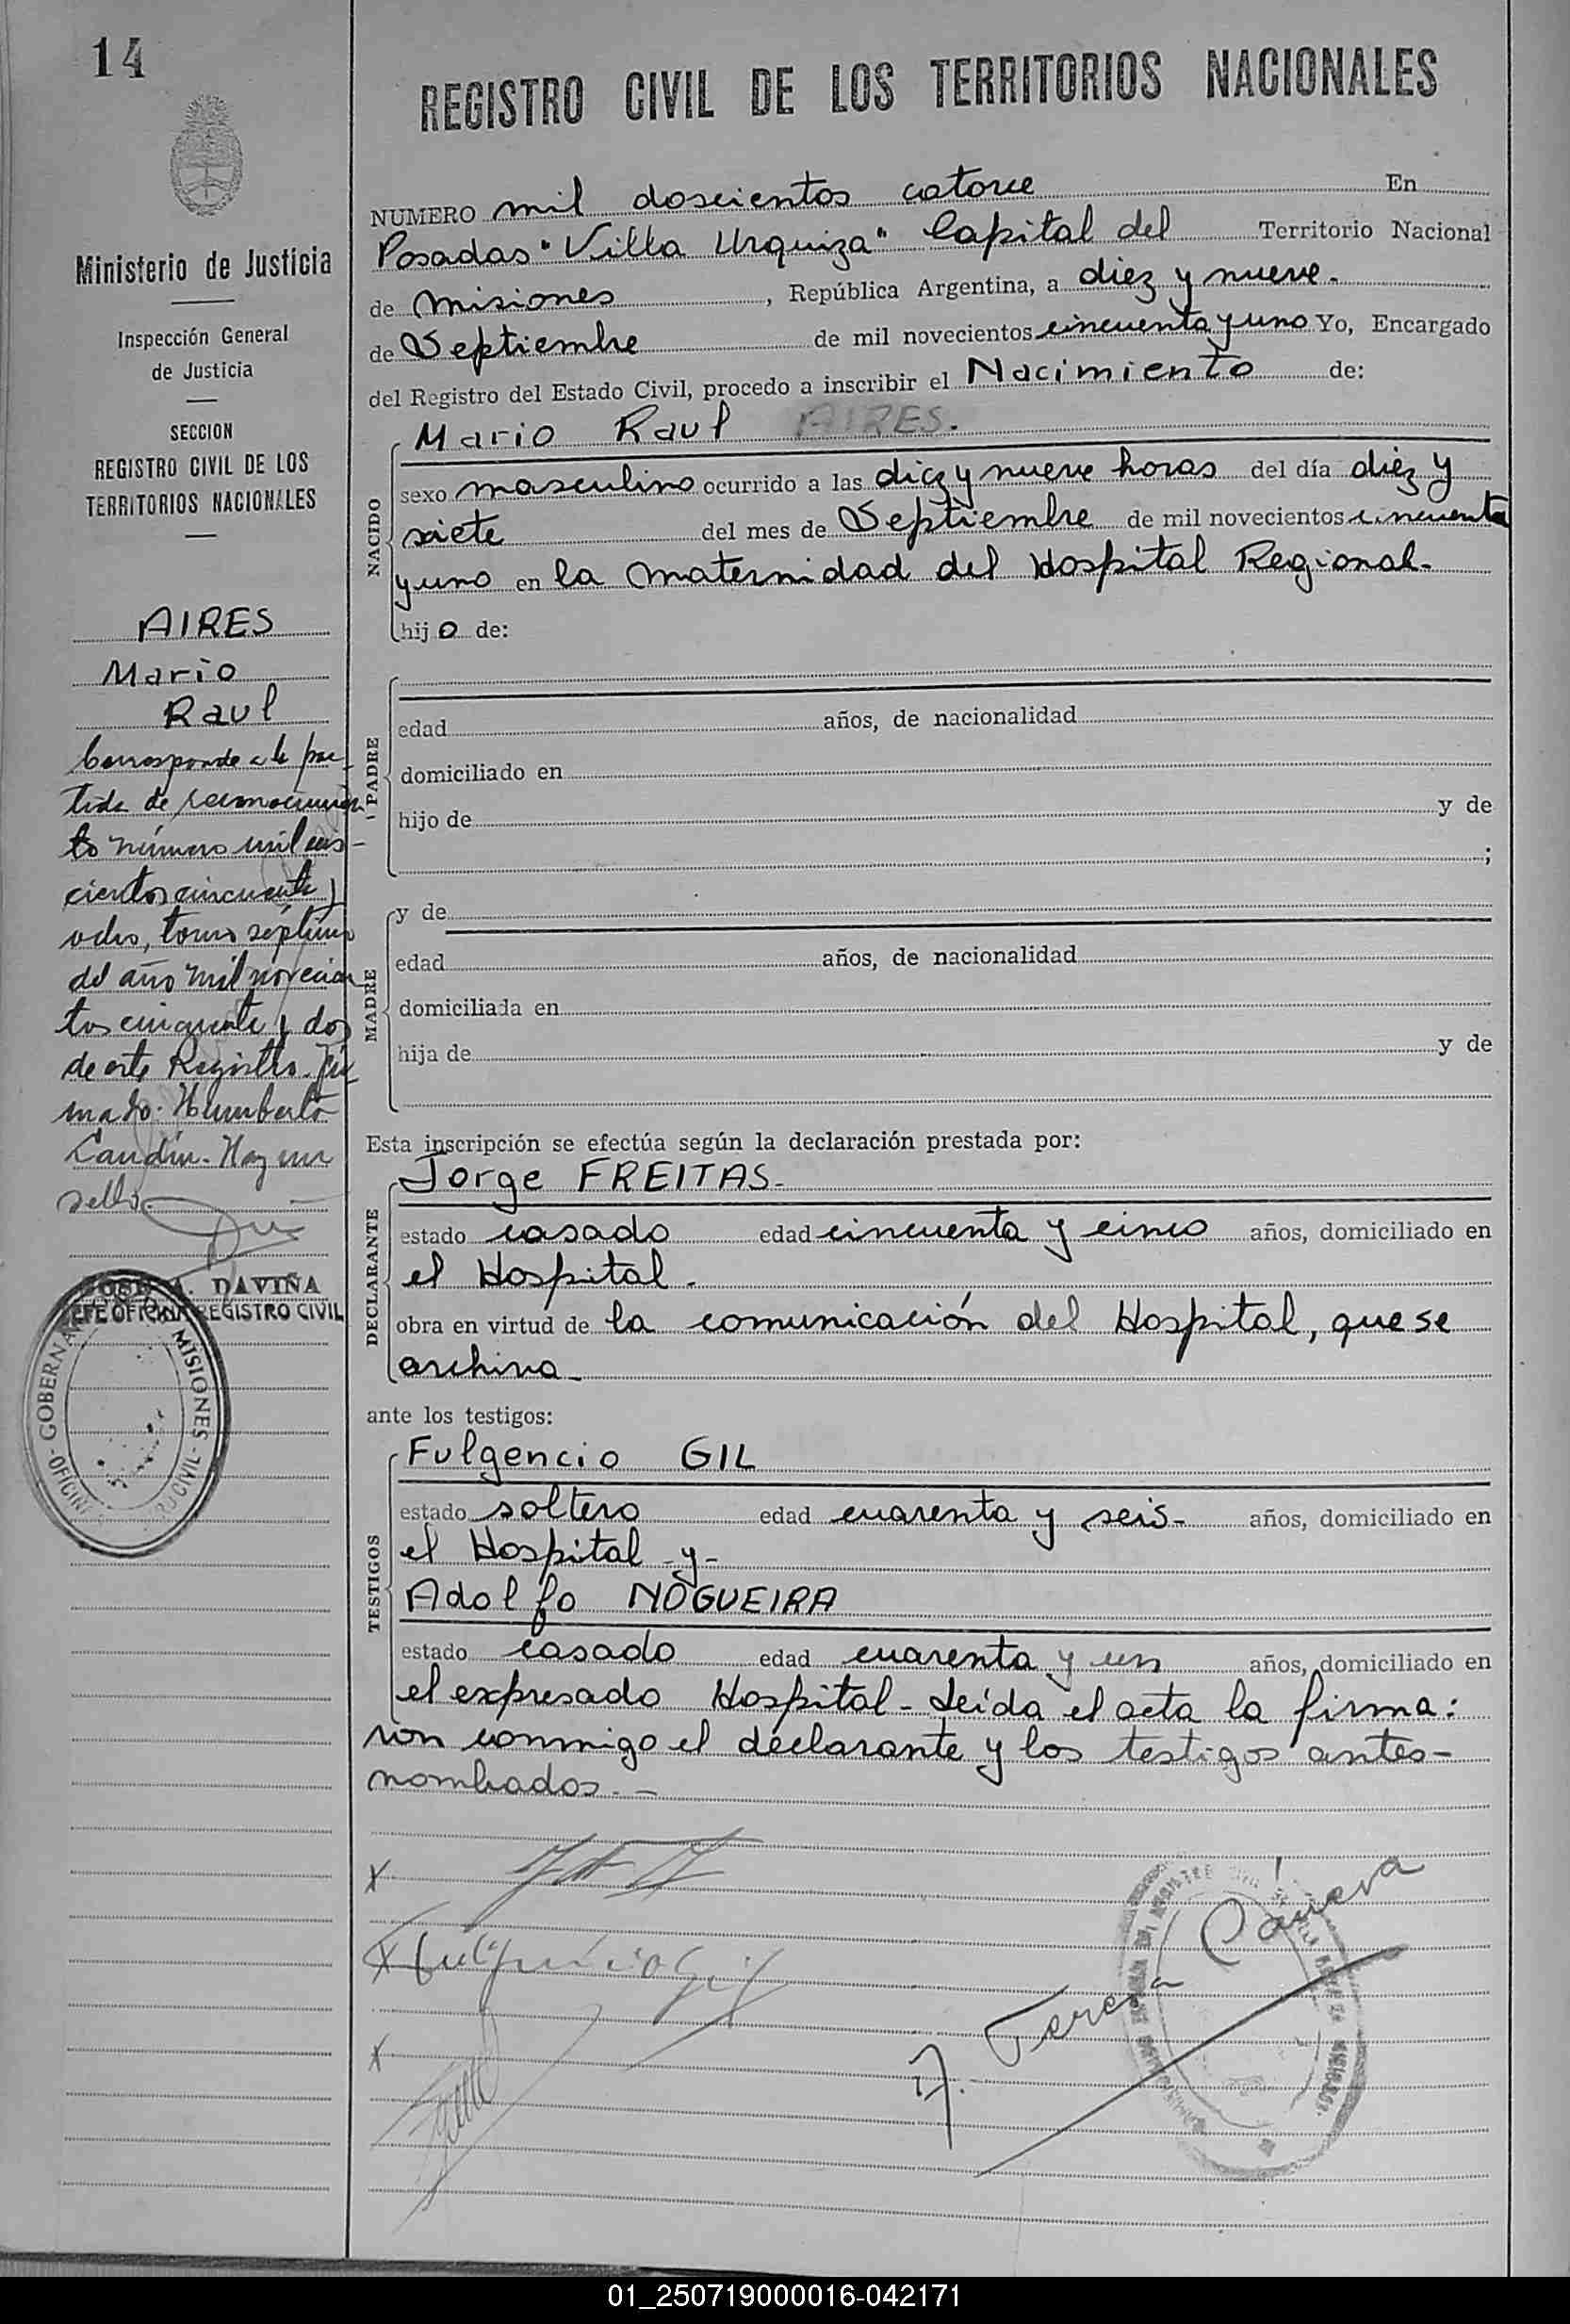 14
REGISTRO CIVIL DE LOS TERRITORIOS NACIONALES
Ministerio de Justicia
Inspección General
de Justicia
SECCION
REGISTRO CIVIL DE LOS
TERRITORIOS NACIONALES
AIRES
Mario
Raul
Corresponde a la par-
tida de reconocimien
to número mil seis-
cientos cincuenta y
ocho, tomo séptimo
del año mil novecien
tos cincuenta y dos
de este Registro. Fir
mado: Humberto
Candín. Hay un
sello.
JOSE A. DAVIÑA
JEFE OFICINA REGISTRO CIVIL
GOBERNA MISIONES - OFICINA CIVIL
NUMERO mil doscientos catorce En
Posadas "Villa Urquiza" Capital del Territorio Nacional
de Misiones, República Argentina, a diez y nueve.
de Septiembre de mil novecientos cincuenta y uno Yo, Encargado
del Registro del Estado Civil, procedo a inscribir el Nacimiento de:
Mario Raul AIRES.
NACIDO
sexo masculino ocurrido a las diez y nueve horas del día diez y
siete del mes de Septiembre de mil novecientos cincuenta
y uno en la Maternidad del Hospital Regional.
hijo de:
PADRE
edad años, de nacionalidad
domiciliado en
hijo de y de
;
MADRE
y de
edad años, de nacionalidad
domiciliada en
hija de y de
Esta inscripción se efectúa según la declaración prestada por:
DECLARANTE
Jorge FREITAS.
estado casado edad cincuenta y cinco años, domiciliado en
el Hospital.
obra en virtud de la comunicación del Hospital, que se
archiva
ante los testigos:
TESTIGOS
Fulgencio GIL
estado soltero edad cuarenta y seis- años, domiciliado en
el Hospital -y-
Adolfo NOGUEIRA
estado casado edad cuarenta y un años, domiciliado en
el expresado Hospital - Leída el acta la firma:
ron conmigo el declarante y los testigos antes-
nombrados.-
x
x Fulgencio Gil
x
Teresa Cánova
01_250719000016-042171